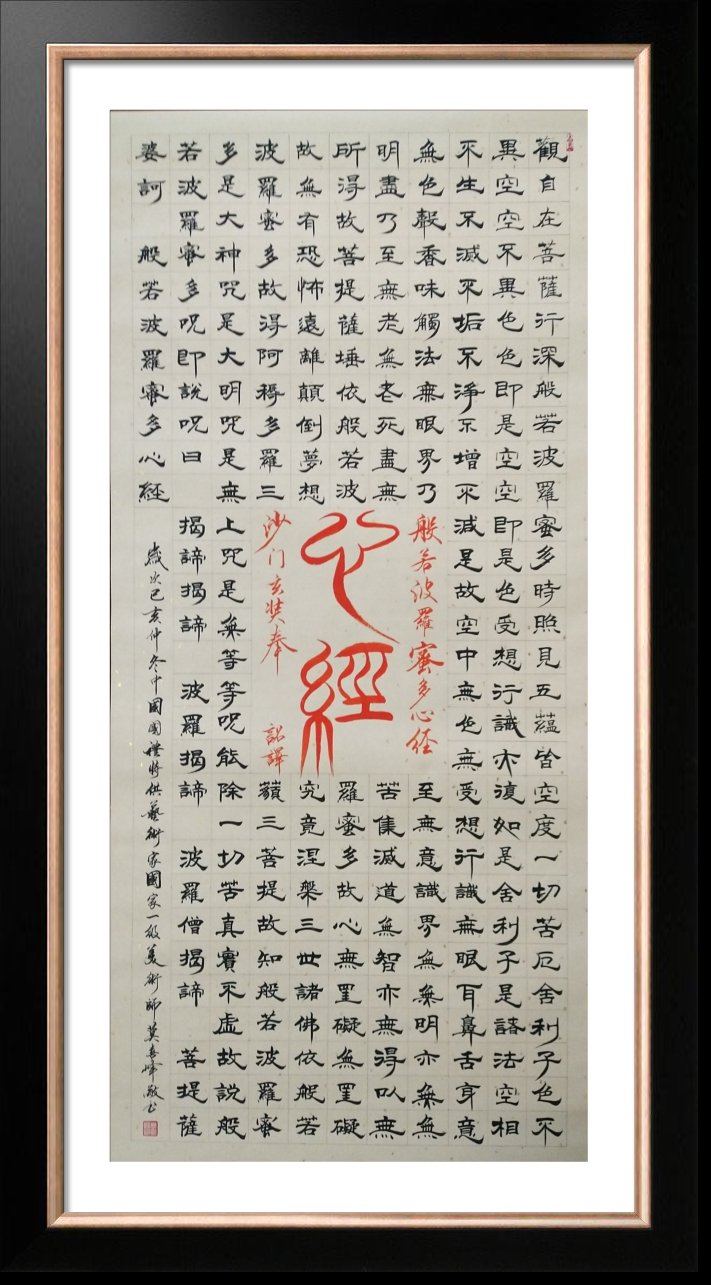 觀自在菩薩行深般若波羅蜜多時照見五蘊皆空度一切苦厄舍利子色不
異空空不異色色即是空空即是色受想行識亦復如是舍利子是諸法空相
不生不滅不垢不淨不增不減是故空中無色無受想行識無眼耳鼻舌身意
無色聲香味觸法無眼界乃
至無意識界無無明亦無無
明盡乃至無老無老死盡無
苦集滅道無智亦無得以無
所得故菩提薩埵依般若波
羅蜜多故心無罣礙無罣礙
故無有恐怖遠離顛倒夢想
究竟涅槃三世諸佛依般若
波羅蜜多故得阿耨多羅三
藐三菩提故知般若波羅蜜
多是大神咒是大明咒是無上咒是無等等呪能除一切苦真實不虛故説般
若波羅蜜多呪即説呪曰 揭諦揭諦 波羅揭諦 波羅僧揭諦 菩提薩
婆訶 般若波羅蜜多心經
般若波羅蜜多心經
心經
沙门玄奘奉 詔譯
歲次己亥仲冬中國國禮特供藝術家國家一級美術師莫喜峰敬书